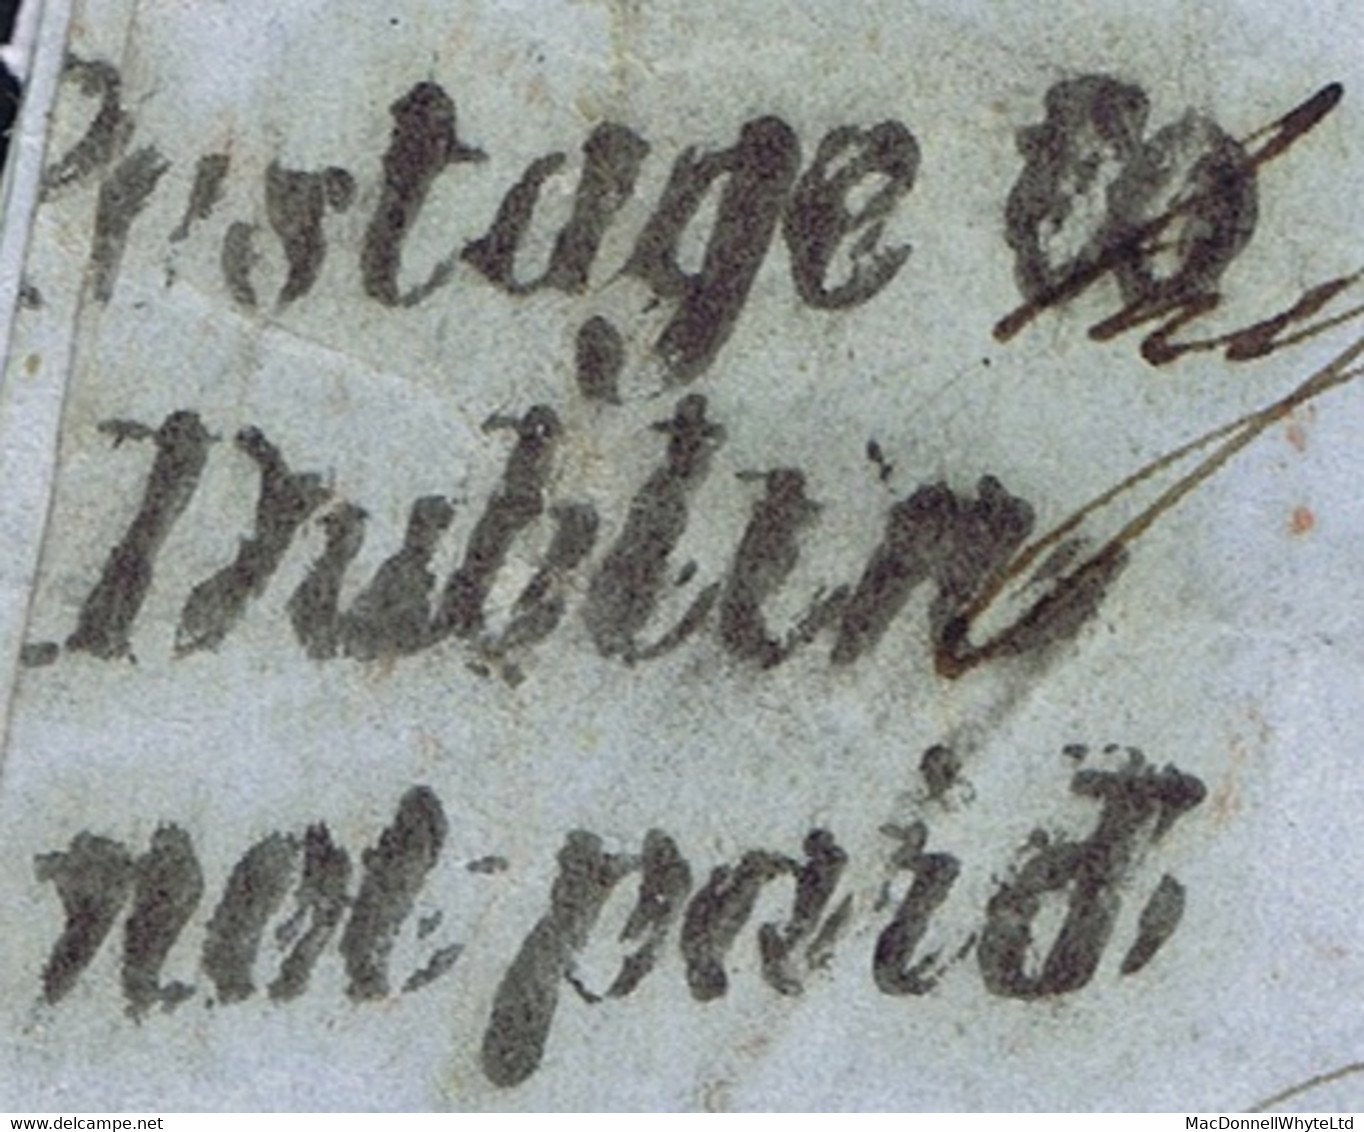 Postage to
Dublin
not paid
delcampe.net
MacDonnellWhyteLtd